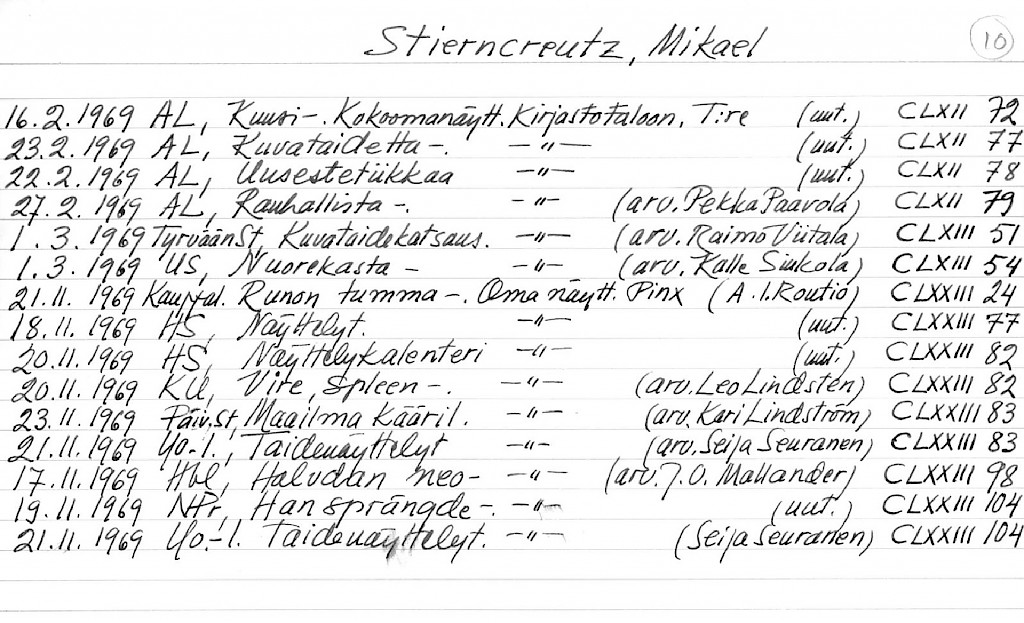 Stierncreutz, Mikael 10
16.2.1969 AL, Kuusi-. Kokoomanäytt. Kirjastotaloon, T:re (uut.) CLXII 72
23.2.1969 AL, Kuvataidetta-. -"- (uut.) CLXII 77
22.2.1969 AL, Uusestetiikkaa -"- (uut.) CLXII 78
27.2.1969 AL, Rauhallista-. -"- (arv. Pekka Paavola) CLXII 79
1.3.1969 TyrväänSt, Kuvataidekatsaus. -"- (arv. Raimo Viitala) CLXIII 51
1.3.1969 US, Nuorekasta- -"- (arv. Kalle Siukola) CLXIII 54
21.11.1969 Kauppal. Runon tumma-. Oma näytt. Pinx (A.I. Routio) CLXXIII 24
18.11.1969 HS, Näyttelyt. -"- (uut.) CLXXIII 77
20.11.1969 HS, Näyttelykalenteri -"- (uut.) CLXXIII 82
20.11.1969 KU, Vire, spleen-. -"- (arv. Leo Lindsten) CLXXIII 82
23.11.1969 Päiv.St, Maailma kääril. -"- (arv. Kari Lindström) CLXXIII 83
21.11.1969 Yo.-l., Taidenäyttelyt -"- (arv. Seija Seuranen) CLXXIII 83
17.11.1969 Hbl, Halvdan neo- -"- (arv. J.O. Mallander) CLXXIII 98
19.11.1969 NPr, Han sprängde-. -"- (uut.) CLXXIII 104
21.11.1969 Yo.-l. Taidenäyttelyt. -"- (Seija Seuranen) CLXXIII 104